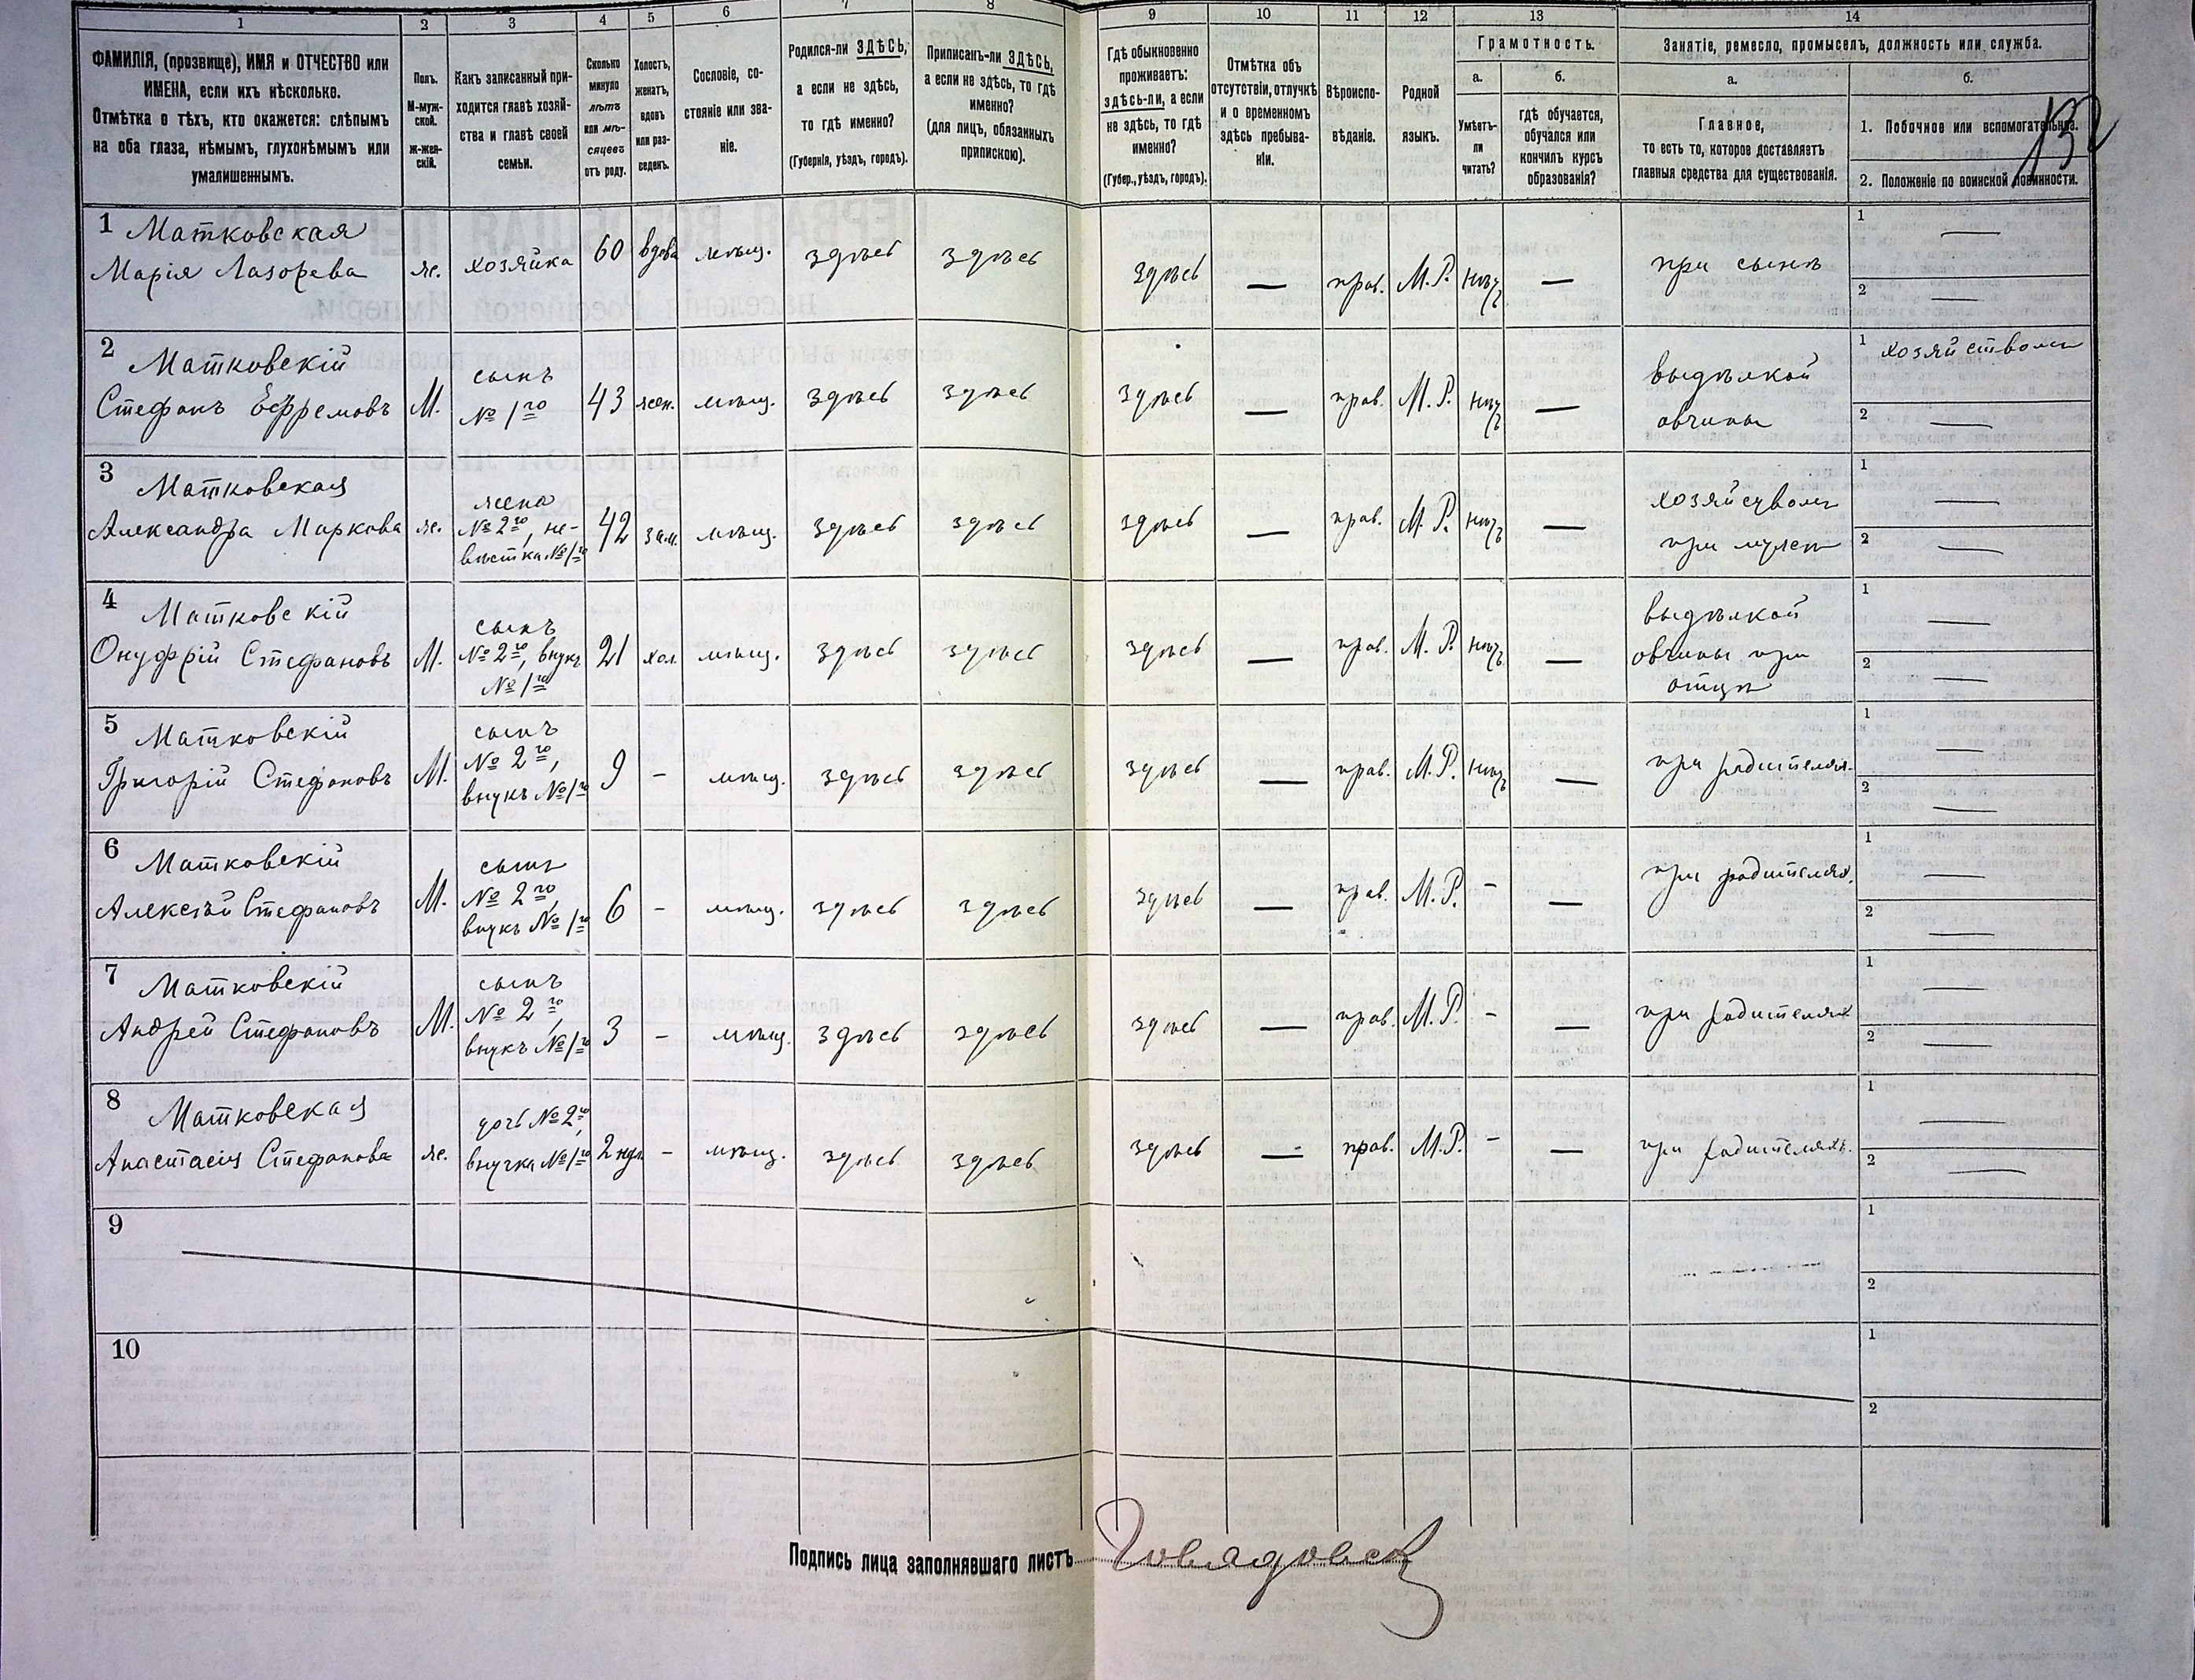 1 2 3 4 5 6 7 8 9 10 11 12 13 14
ФАМИЛІЯ, (прозвище), ИМЯ и ОТЧЕСТВО или
ИМЕНА, если ихъ нѣсколько.
Отмѣтка о тѣхъ, кто окажется: слѣпымъ
на оба глаза, нѣмымъ, глухонѣмымъ или
умалишеннымъ.
Полъ.
М-муж-
ской.
Ж-жен-
скій.
Какъ записанный при-
ходится главѣ хозяй-
ства и главѣ своей
семьи.
Сколько
минуло
лѣтъ
или мѣ-
сяцевъ
отъ роду.
Холостъ,
женатъ,
вдовъ
или раз-
веденъ.
Сословіе, со-
стояніе или зва-
ніе.
Родился-ли ЗДѢСЬ,
а если не здѣсь,
то гдѣ именно?
(Губернія, уѣздъ, городъ).
Приписанъ-ли ЗДѢСЬ,
а если не здѣсь, то гдѣ
именно?
(для лицъ, обязанныхъ
припискою).
Гдѣ обыкновенно
проживаетъ:
здѣсь-ли, а если
не здѣсь, то гдѣ
именно?
(Губер., уѣздъ, городъ).
Отмѣтка объ
отсутствіи, отлучкѣ
и о временномъ
здѣсь пребыва-
ніи.
Вѣроиспо-
вѣданіе.
Родной
языкъ.
Грамотность.
а.
Умѣетъ-
ли
читать?
б.
гдѣ обучается,
обучался или
кончилъ курсъ
образованія?
Занятіе, ремесло, промыселъ, должность или служба.
а.
Главное,
то есть то, которое доставляетъ
главныя средства для существованія.
б.
1. Побочное или вспомогательное.
2. Положеніе по воинской повинности.
132
1 Матковская
Марія Лазорева
ж. хозяйка 60 вдова мѣщ. здѣсь здѣсь здѣсь — прав. М. Р. нѣтъ —
при сынѣ
1 —
2 —
2 Матковскій
Стефанъ Ефремовъ
М.
сынъ
№ 1го
43 жен. мѣщ. здѣсь здѣсь здѣсь — прав. М. Р. нѣтъ —
выдѣлкой
овчины
1 хозяйствомъ
2 —
3 Матковская
Александра Маркова
ж.
жена
№ 2го, не-
вѣстка № 1го
42 зам. мѣщ. здѣсь здѣсь здѣсь — прав. М. Р. нѣтъ —
хозяйствомъ
при мужѣ
1 —
2 —
4 Матковскій
Онуфрій Стефановъ
М.
сынъ
№ 2го, внукъ
№ 1го
21 хол. мѣщ. здѣсь здѣсь здѣсь — прав. М. Р. нѣтъ —
выдѣлкой
овчины при
отцѣ
1 —
2 —
5 Матковскій
Григорій Стефановъ
М.
сынъ
№ 2го,
внукъ № 1го
9 - мѣщ. здѣсь здѣсь здѣсь — прав. М. Р. нѣтъ —
при родителях.
1 —
2 —
6 Матковскій
Алексѣй Стефановъ
М.
сынъ
№ 2го,
внукъ № 1го
6 - мѣщ. здѣсь здѣсь здѣсь — прав. М. Р. - —
при родителях.
1 —
2 —
7 Матковскій
Андрей Стефановъ
М.
сынъ
№ 2го,
внукъ № 1го
3 - мѣщ. здѣсь здѣсь здѣсь — прав. М. Р. - —
при родителях
1 —
2 —
8 Матковская
Анастасія Стефанова
ж.
дочь № 2го,
внучка № 1го
2 - мѣщ. здѣсь здѣсь здѣсь — прав. М. Р. - —
при родителяхъ.
1 —
2 —
9
1
2
10
1
2
Подпись лица заполнявшаго листъ